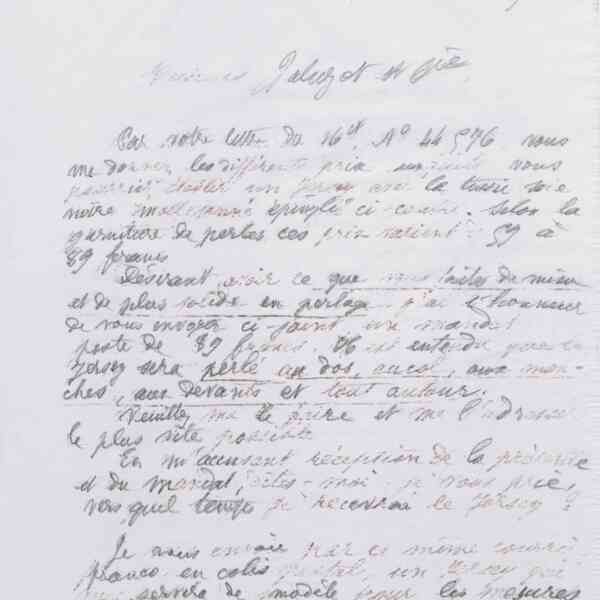 Messieurs Jaluzot et Cie
Par votre lettre du 16 ct. No 44576 vous
me donnez les différents prix auxquels vous
pourriez établir un Jersey avec la tissu soie
notre épinglé ci-contre. Selon la
garniture de perles ces prix varient 59 à
89 francs
Désirant avoir ce que vous faites de mieux
et de plus solide en perlage j'ai l'honneur
de vous envoyer ci joint un mandat
poste de 89 francs. Il est entendu que le
Jersey sera perlé au dos, au col, aux man-
ches, aux devants et tout autour.
Veuillez me le faire et me l'adresser
le plus vite possible
En m'accusant réception de la présente
et du mandat, dites-moi je vous prie,
vers quel temps je recevrai le Jersey?
Je vous envoie par ce même courrier
franco en colis postal, un Jersey qui
servira de modèle pour les mesures